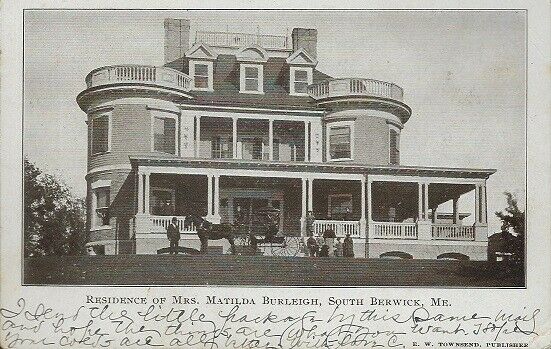 Residence of Mrs. Matilda Burleigh, South Berwick, Me.
I send the little package by this same mail
and hope the things are what you want. I hope
your colds are all
E. W. Townsend, Publisher